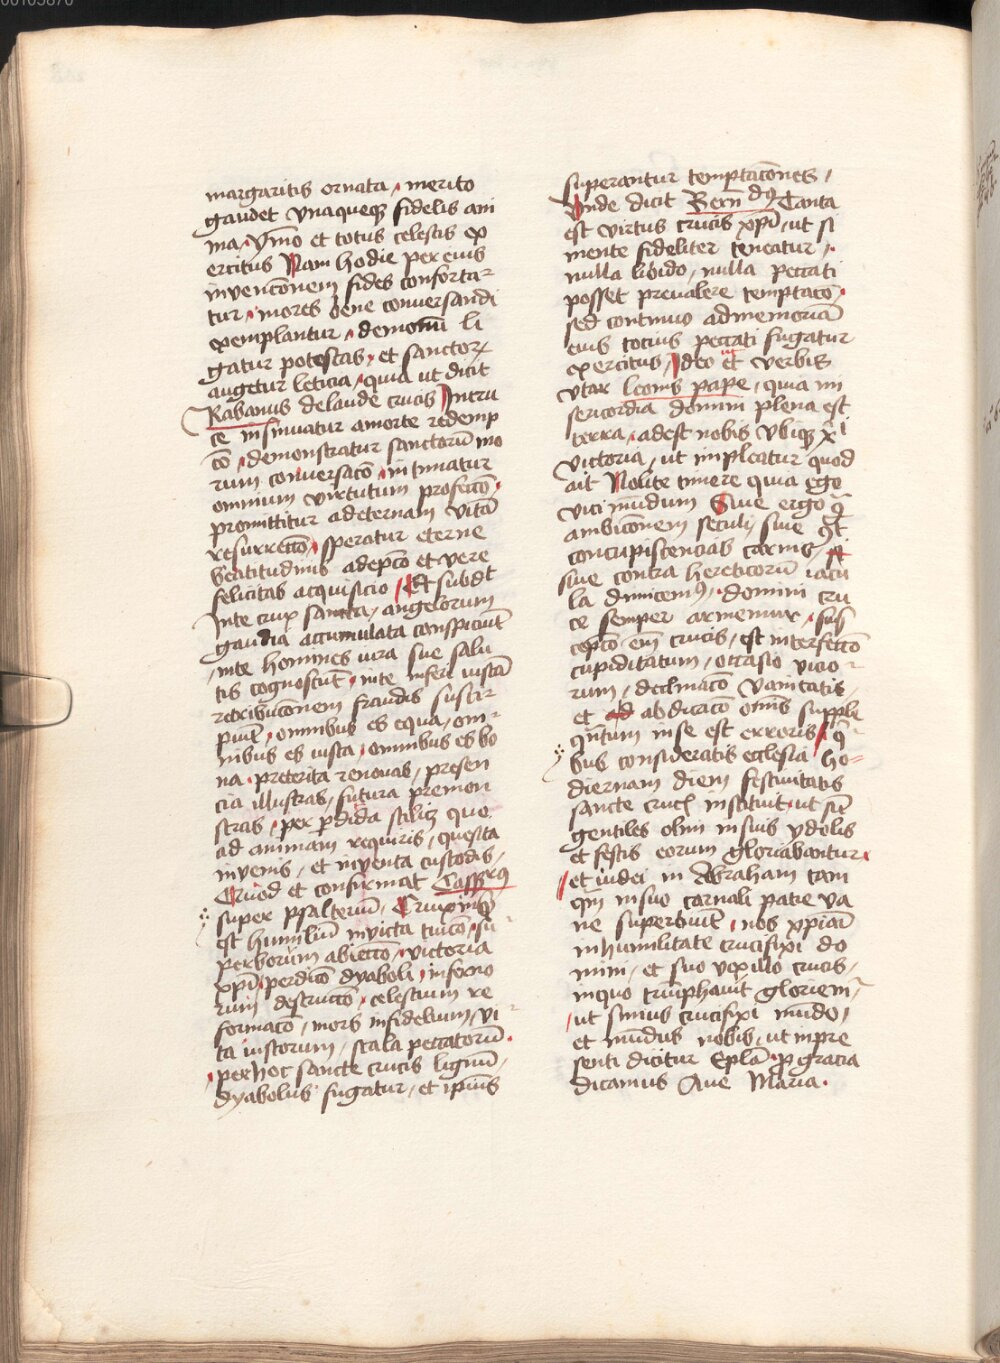 00105870
margaritis ornata, merito
gaudet vnaqueqꝫ fidelis ani
ma, ymo et totus celestis ex
ercitus Nam hodie per eius
invencōnem fides conforta-
tur, mores bene conversandi
exemplantur, demonū li
gatur potestas, et sanctoꝝ
augetur leticia, quia ut dicit
Rabanus de laude crucis Intru
ce insinuatur amorte redemp
cō, demonstratur sanctorū mo
rum conversacō, intimatur
omnium virtutum profectō,
promittitur ad eternam vitā
resurrectō, speratur eterne
beatitudinis adepcō et vere
felicitas acquisicio, Et subdt
Inte crux sancta, angelorum
gaudia accumulata conspiciūt
, inte homines iura sue salu
tis cognoscūt, inte inferi iustā
retribucōnem fraudis suscir
piūt, omnibus es equa, om-
nibus es iusta, omnibus es bo
na, preterita renovas, presen
cia illustras, futura premon
stras, per p̄dida scilicꝫ que
ad animam requiris, quesita
invenis, et inventa custodis,
Qruod et confirmat Cassꝰ
super psalterium, Crux
est humiliū invicta tuicō, su-
perborum abiectō, victoria
xp̄i, perdicō dyaboli, inferno
rum destructō, celestium re
formacō, mors infidelium, vi-
ta iustorum, scala peccatorū.
, per hoc sancte crucis lignū,
dyabolus fugatur, et ipsius
superantur temptacōnes,
Unde dicit Bern dꝰ Tanta
est virtus crucis xp̄i, ut si
mente fideliter teneatur,
nulla libido, nulla peccati
posset prevalere temptacō,
sed continuo ad memoriā
eius tocius peccati fugatur
exercitus, Ideo et ut verbis
vtar leonis pape, quia mi
sericordia domini plena est
terra, adest nobis vbiqꝫ xi
victoria, ut impleatur quod
ait Nolite timere quia ego
vici mūdum Sive ergo q̄
ambicōnem seculi, sive q̄t
concupiscencias carnis,
sive contra hereticorū iacu
la dimicemꝰ, domini cru
ce semper armemur, sus
cepcō em̄ crucis, est interfectō
cupiditatum, occasio vicio-
rum, declinacō vanitatis,
et ad abdicacō om̄is supple
q̄ntum in se est erroris, q̄-
bus consideratis ecclesia ho-
diernam diem festivitatis
sancte crucꝭ instituit, ut sic̄
gentiles olim in suis ydolis
et festis eorum gloriabantur,
et iudei in Abraham tam
q̄m in suo carnali patre va
ne superbiūt, nos xp̄iani
in humilitate crucifixi do
mini, et suo vexillo crucis,
in quo triūphavit gloriem̄-
, ut simus crucifixi mūdo,
et mūdus nobis, ut in pre
senti dicitur Ep̄la, p̄ gracia
dicamus Ave Maria.